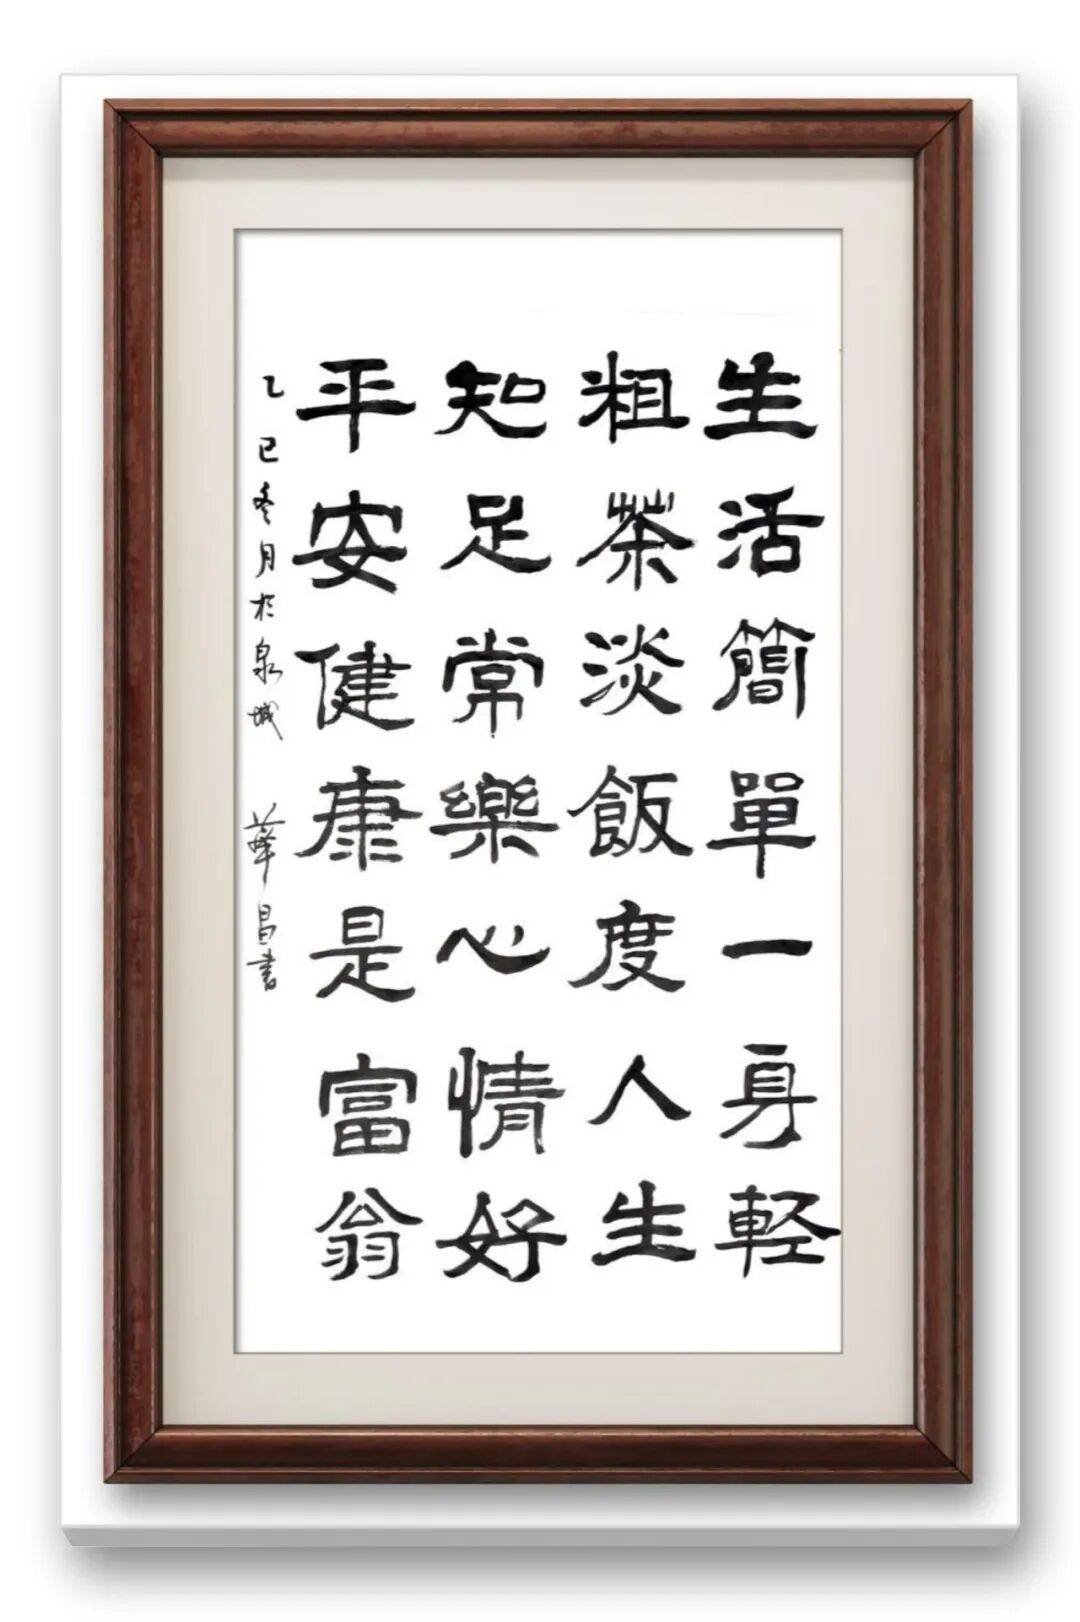 生活簡單一身軽
粗茶淡飯度人生
知足常樂心情好
平安健康是富翁
乙巳冬月於泉城 華昌書